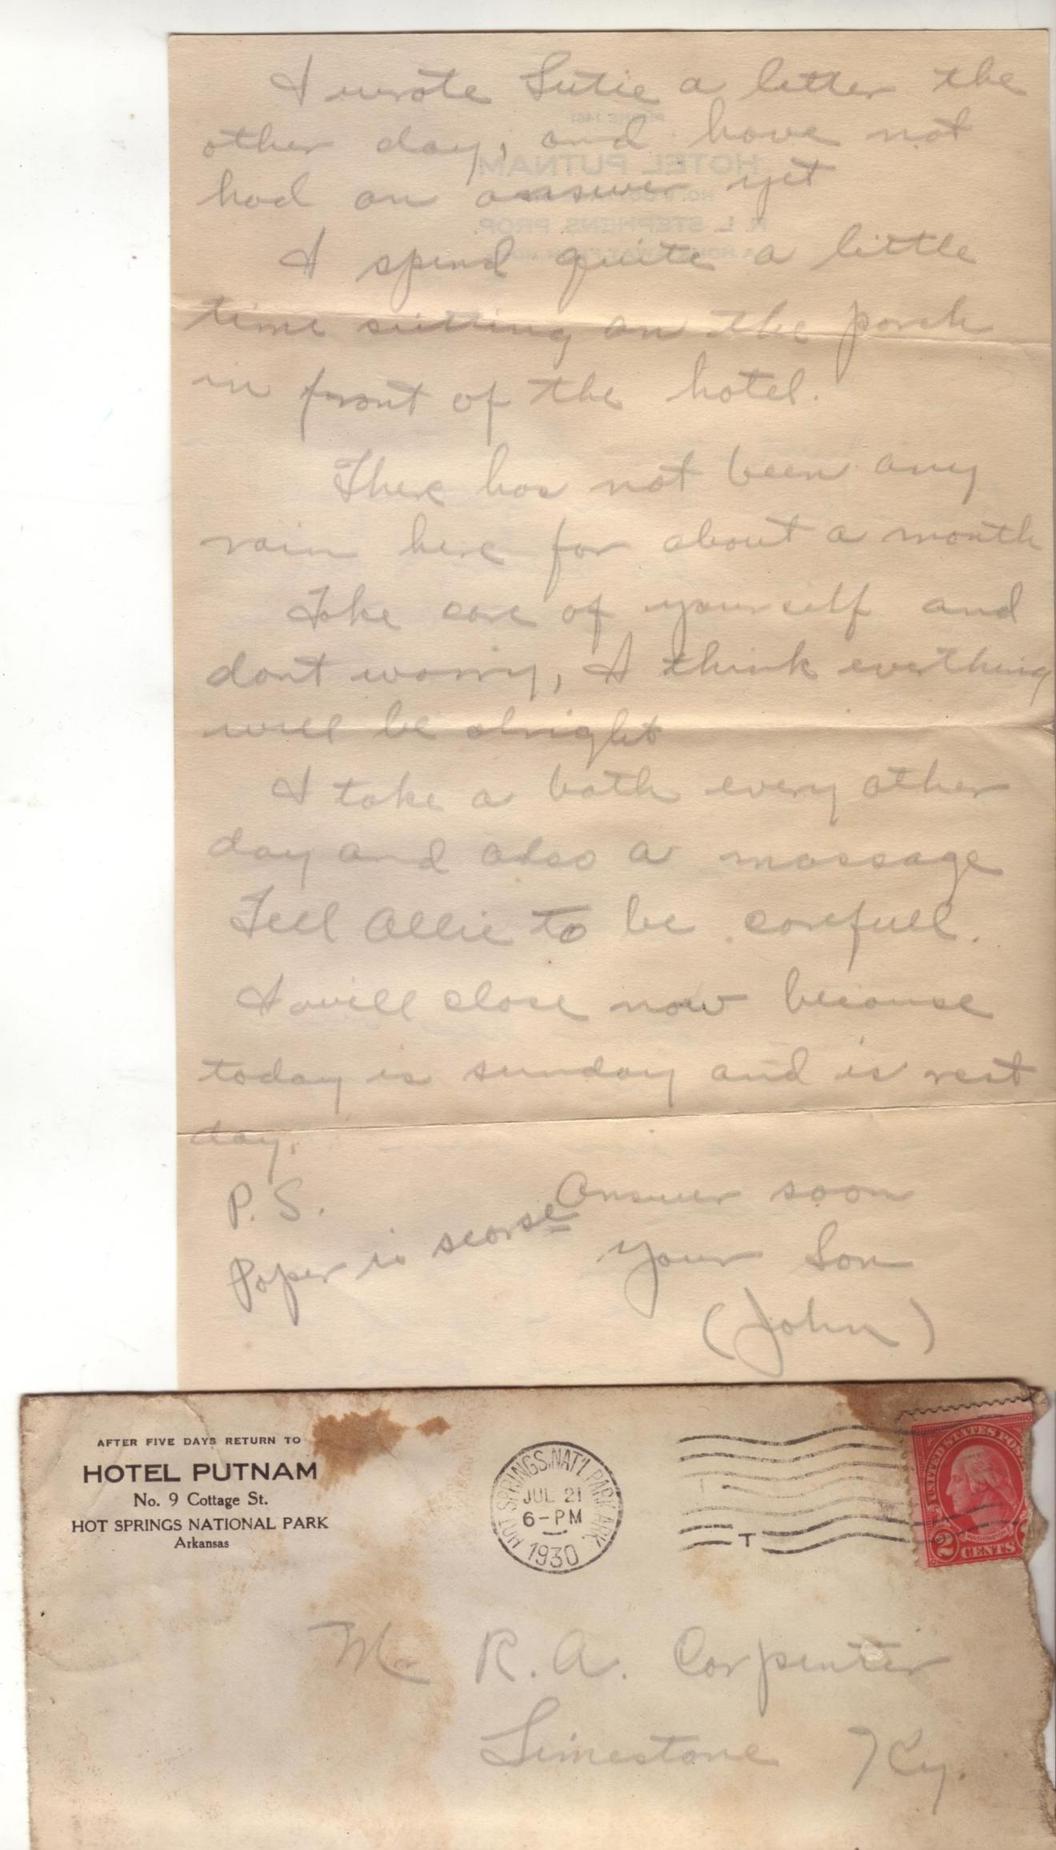 I wrote Sutie a letter the
other day, and have not
had an answer yet
I spend quite a little
time sitting on the porch
in front of the hotel.
There has not been any
rain here for about a month
Take care of yourself and
dont worry, I think everthing
will be alright
I take a bath every other
day and also a massage
Tell Allie to be carefull.
I will close now because
today is sunday and is rest
day.
P.S.
Paper is scorse
Answer soon
your Son
(John)
PHONE 1461
HOTEL PUTNAM
R. L. STEPHENS, PROP.
AFTER FIVE DAYS RETURN TO
HOTEL PUTNAM
No. 9 Cottage St.
HOT SPRINGS NATIONAL PARK
Arkansas
HOT SPRINGS NAT'L PARK ARK.
JUL 21
6-PM
1930
T
UNITED STATES POS
2 CENTS
Mr R. A. Carpenter
Limestone Ky.